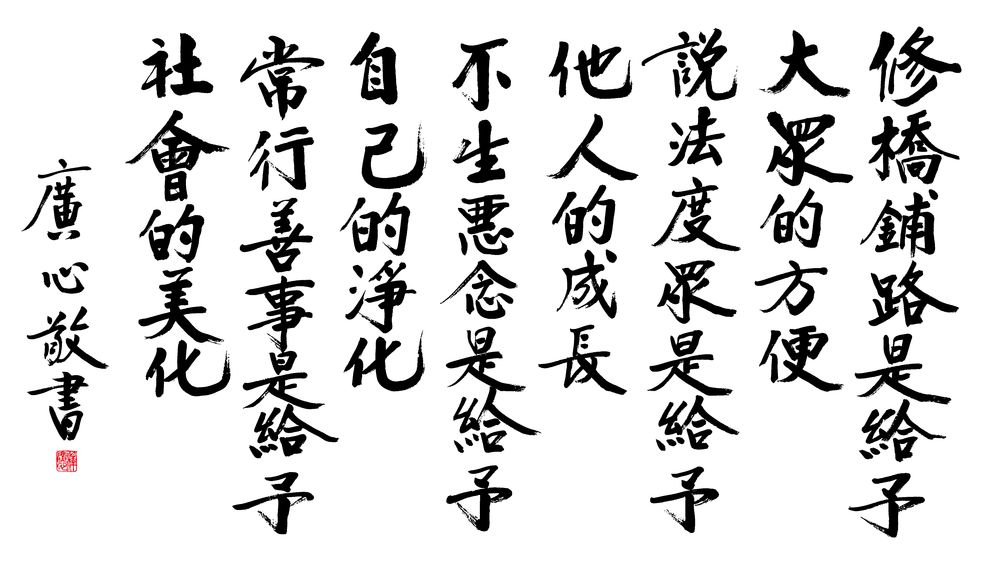 修橋鋪路是給予
大眾的方便
說法度眾是給予
他人的成長
不生惡念是給予
自己的淨化
常行善事是給予
社會的美化
廣心敬書